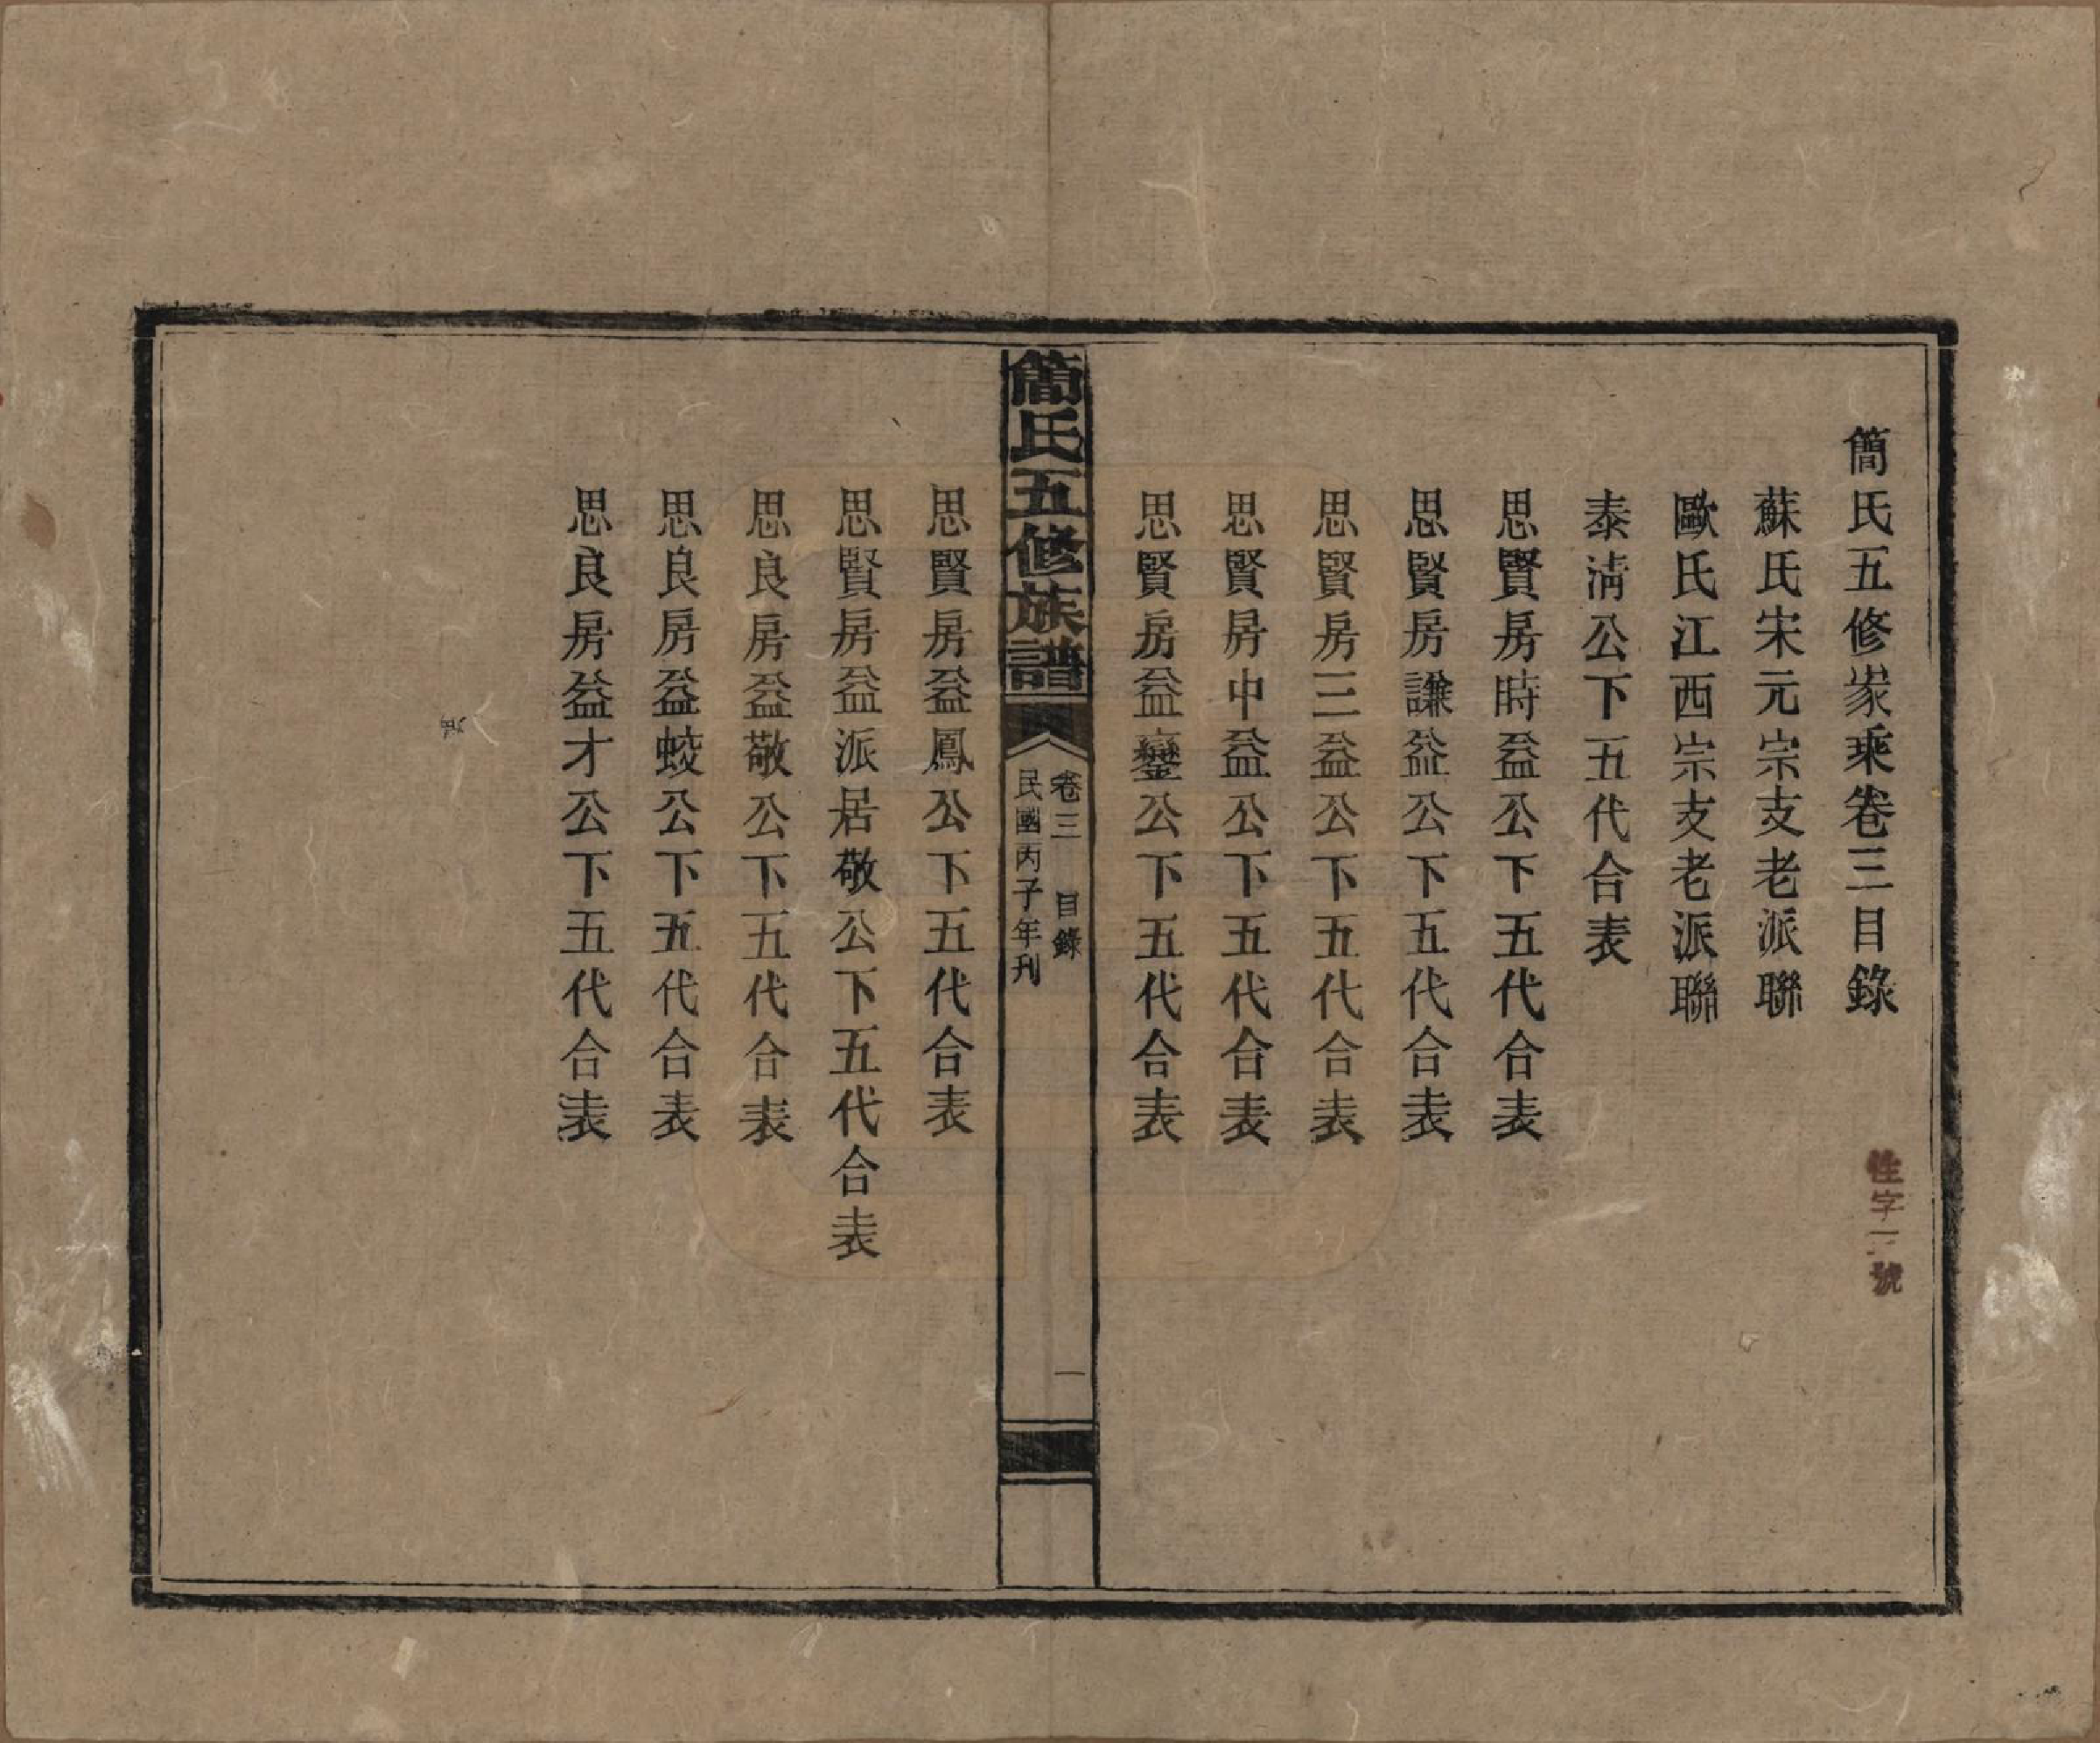 簡氏五修家乘卷三目錄
蘇氏宋元宗支老派聯
歐氏江西宗支老派聯
泰淸公下五代合表
思賢房時益公下五代合表
思賢房謙益公下五代合表
思賢房三益公下五代合表
思賢房中益公下五代合表
思賢房益鑾公下五代合表
簡氏五修族譜
卷三 目錄
民國丙子年刊
一
思賢房益鳳公下五代合表
思賢房益派居敬公下五代合表
思良房益敬公下五代合表
思良房益蛟公下五代合表
思良房益才公下五代合表
字 號